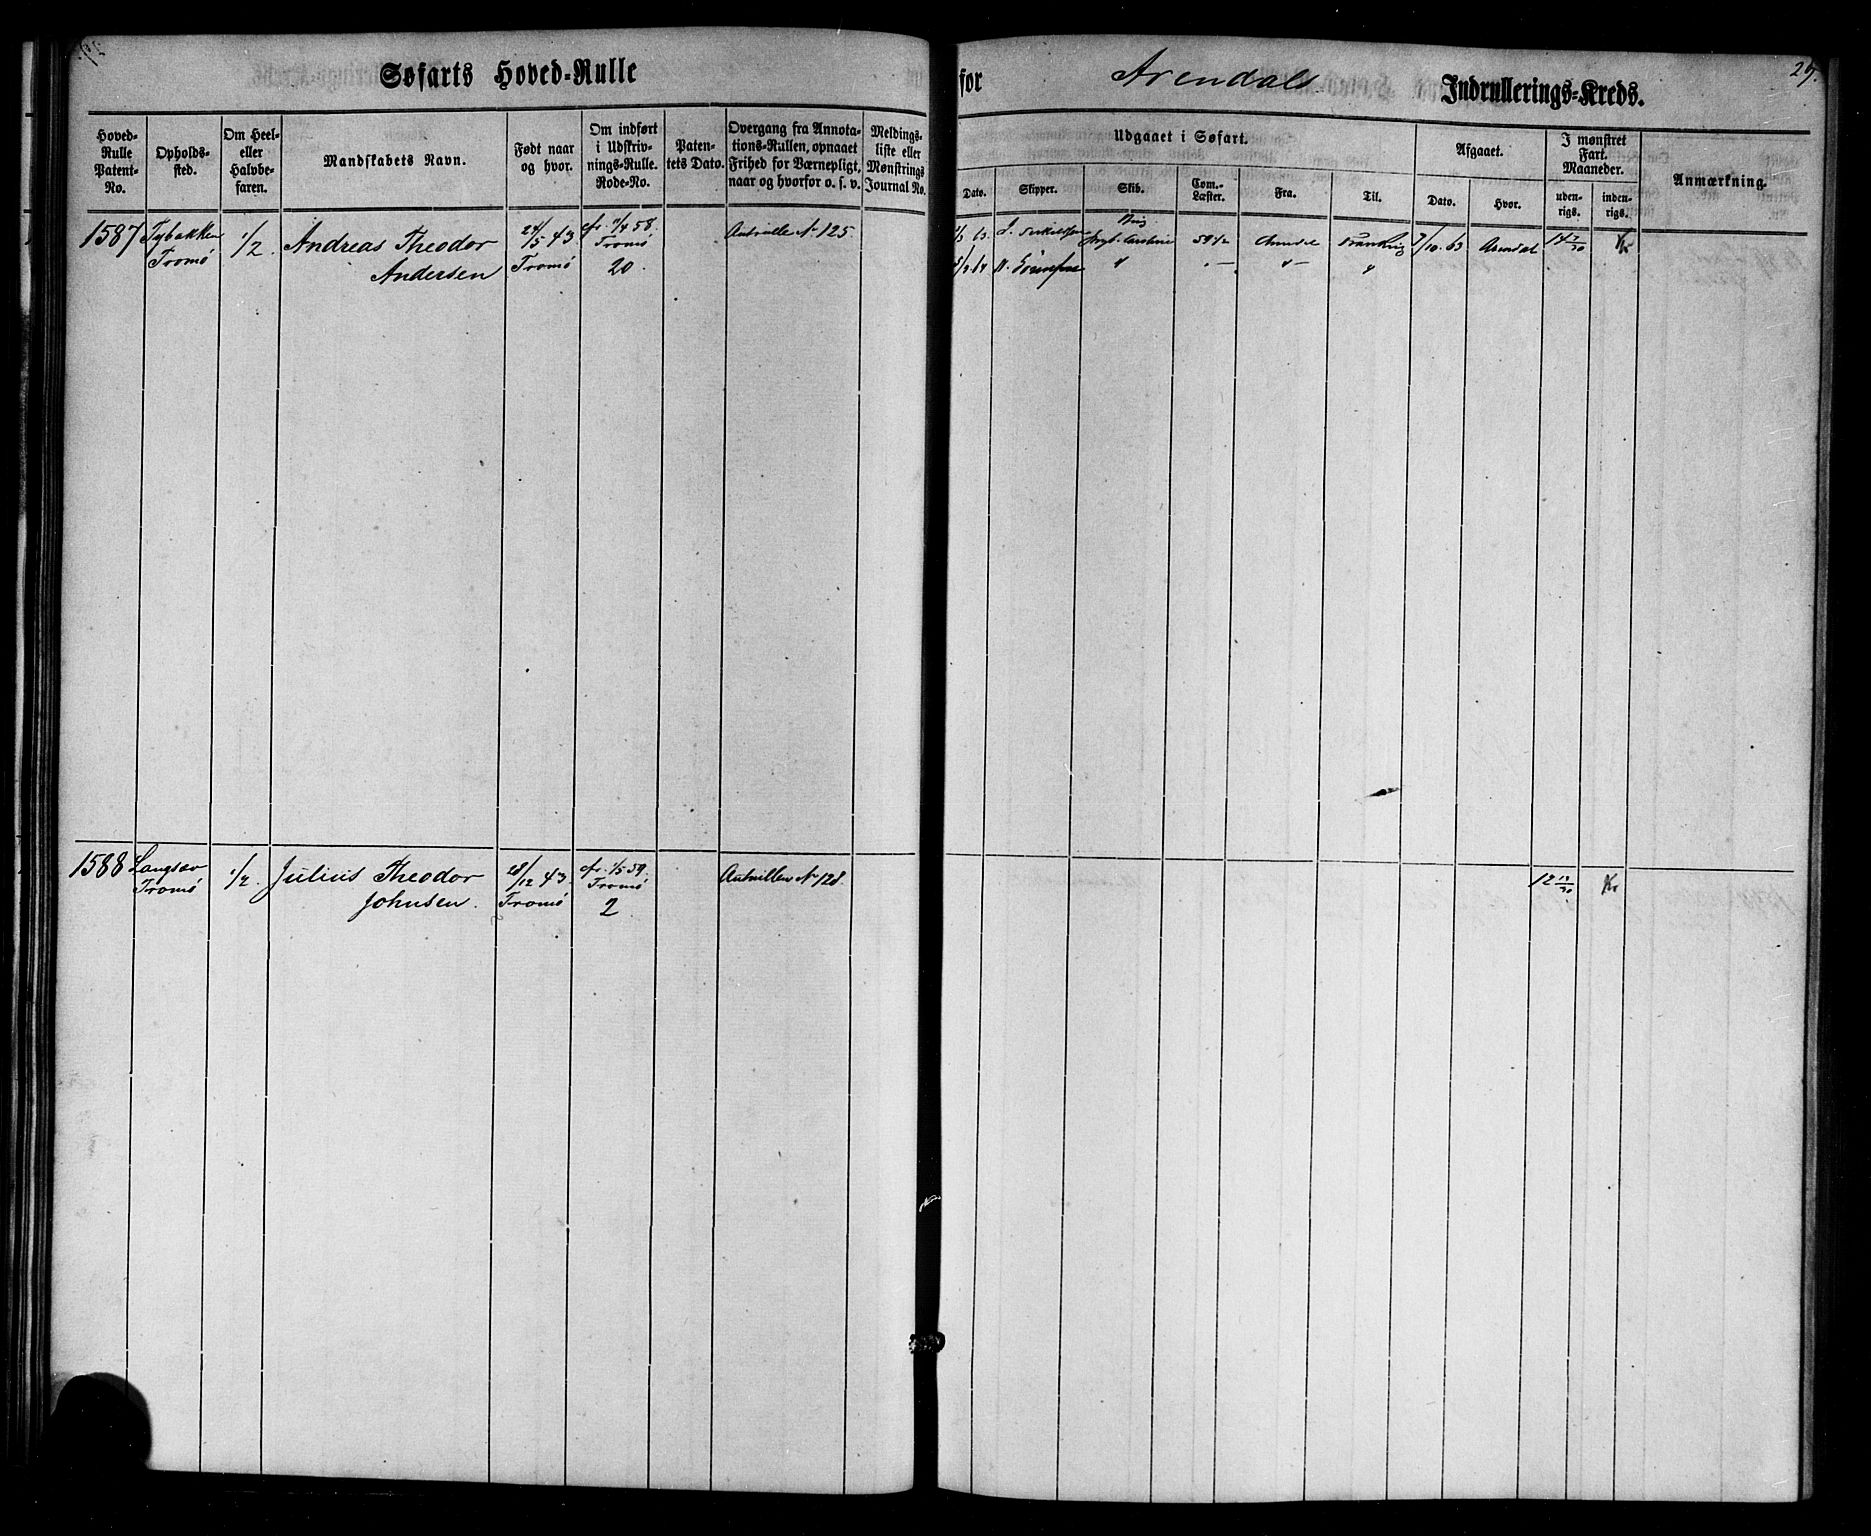 Søfarts Hoved-Rulle
for Arendals Indrullerings-Kreds.
29.
Hoved-Rulle Patent-No.
Opholds-sted.
Om Heel- eller Halvbe-faren.
Mandskabets Navn.
Født naar og hvor.
Om indført i Udskriv-nings-Rulle. Rode-No.
Paten-tets Dato.
Overgang fra Annota-tions-Rullen, opnaaet Frihed for Værnepligt, naar og hvorfor o. s. v.
Meldings-liste eller Mønstrings Journal No.
Udgaaet i Søfart.
Dato.
Skipper.
Skib.
Com.-Læster.
Fra.
Til.
Afgaaet.
Dato.
Hvor.
I mønstret Fart. Maaneder.
uden-rigs.
inden-rigs.
Anmærkning.
1587 Tybakken 1/2 Andreas Theodor 24/5 43 fr. 1/4 58. No 125
Tromø Andersen Tromø Tromø
20.
Brig
63. 59 1/2 Arendal 7/10 63 Arendal 14
1588 Langsæv 1/2. Julius Theodor 28/12 43. fr. 1/5 59. No 128.
Tromø Johnsen. Tromø Tromø
2
12